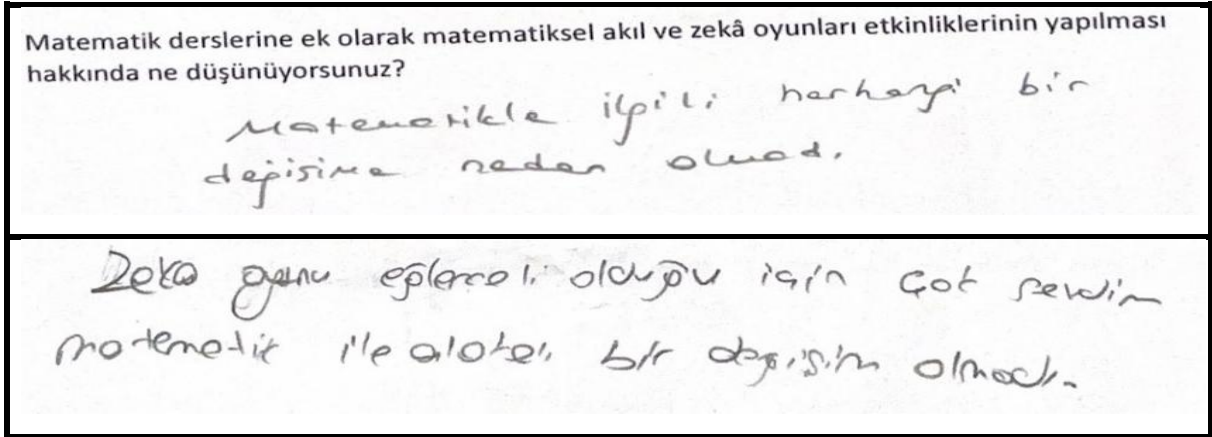 Matematik derslerine ek olarak matematiksel akıl ve zekâ oyunları etkinliklerinin yapılması
hakkında ne düşünüyorsunuz?
Matematikle ilgili herhangi bir
değişime neden olmadı.
Zeka oyunu eğlenceli olduğu için çok sevdim
matematik ile alakalı bir değişim olmadı.